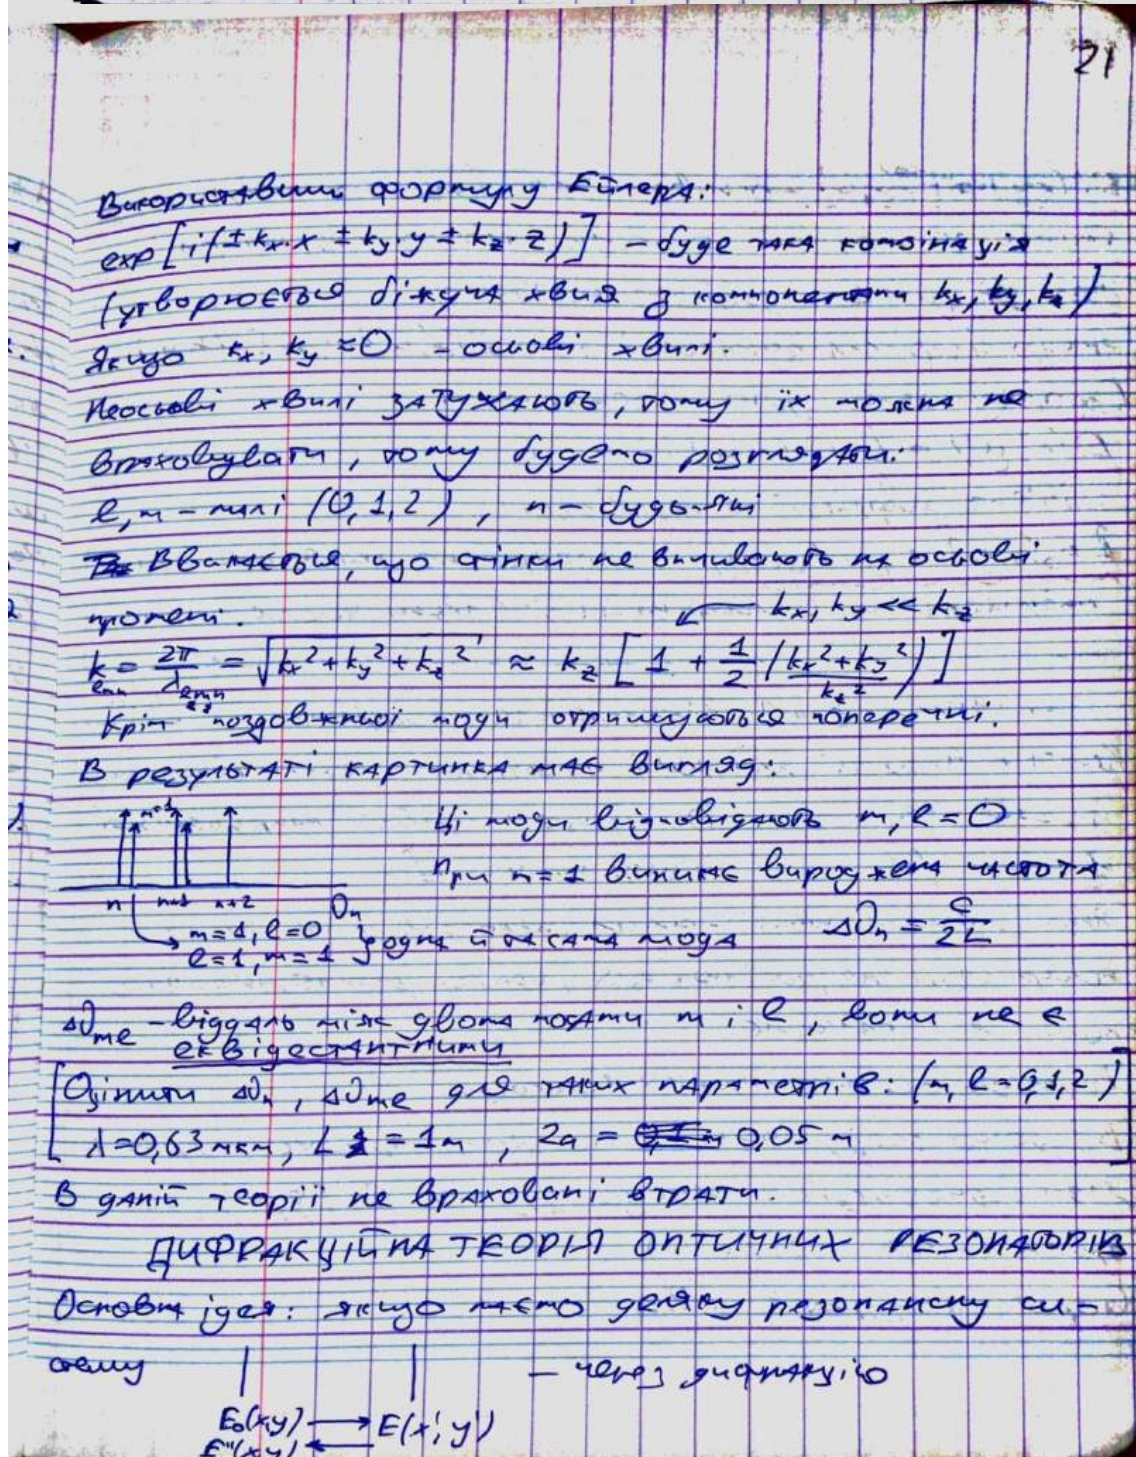 21
Використавши формулу Ейлера:
exp[i(±kx·x ± ky·y ± kz·z)] – буде така комбінація
(утворюється біжуча хвиля з компонентами kx, ky, kz)
Якщо kx, ky ≈ 0 – осьові хвилі.
Неосьові хвилі затухають, тому їх можна не
враховувати, тому будемо розглядати:
l, m – малі (0,1,2), n – будь-які
Вважається, що стінки не впливають на осьові
промені. kx, ky << kz
k_lmn = 2π/λ_lmn = √(kx² + ky² + kz²) ≈ kz [1 + 1/2 ((kx² + ky²)/kz²)]
Крім поздовжньої моди отримуються поперечні.
В результаті картинка має вигляд:
m=1
Ці моди відповідають m, l = 0
При m=1 виникає вироджена частота
n n+1 n+2 υn
m=1, l=0
l=1, m=1 } одна й та сама мода Δυn = c/2L
Δυml – віддаль між двома модами m і l, вони не є
еквідестантними
[Оцінити Δυn, Δυml для таких параметрів: (m, l = 0,1,2)
λ=0,63 мкм, L = 1м, 2a = 0,05 м]
В даній теорії не враховані втрати.
ДИФРАКЦІЙНА ТЕОРІЯ ОПТИЧНИХ РЕЗОНАТОРІВ
Основна ідея: якщо маємо деяку резонансну си-
стему – через дифракцію
E₀(x,y) → E(x',y')
E''(x,y) ←